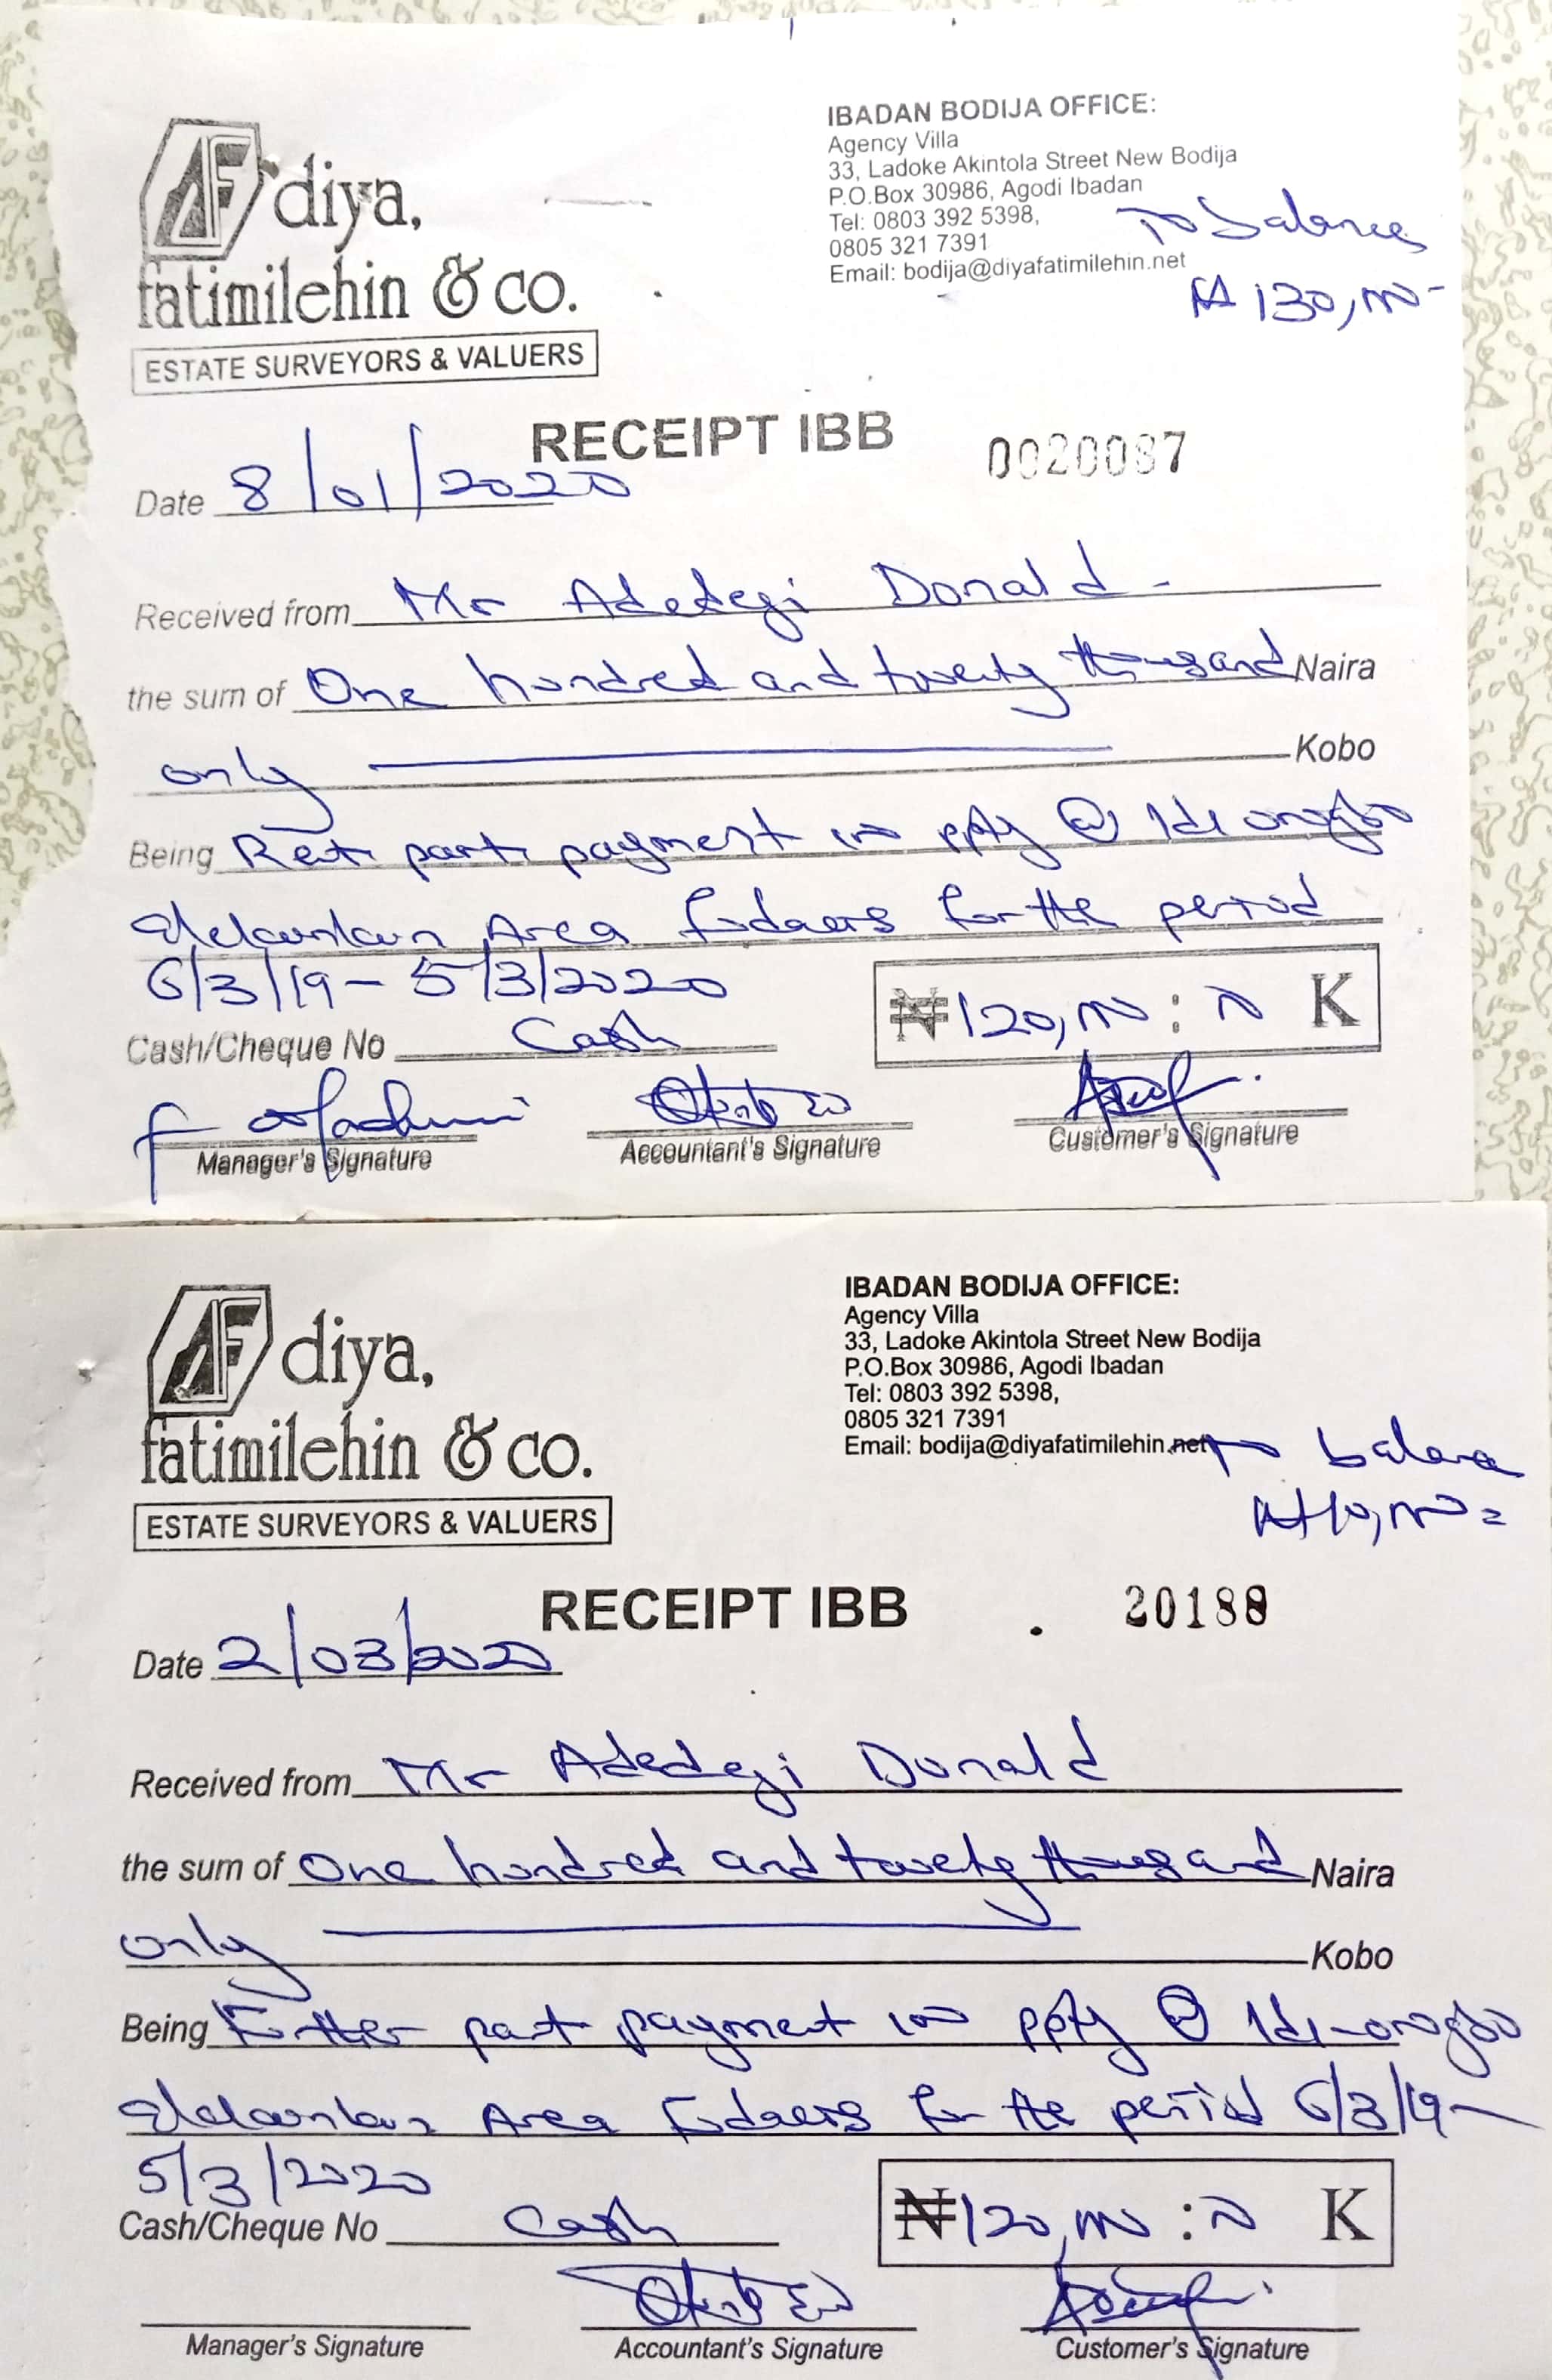 diya,
fatimilehin & co.
ESTATE SURVEYORS & VALUERS
IBADAN BODIJA OFFICE:
Agency Villa
33, Ladoke Akintola Street New Bodija
P.O.Box 30986, Agodi Ibadan
Tel: 0803 392 5398,
0805 321 7391
Email: bodija@diyafatimilehin.net
To balance
₦130,000-
RECEIPT IBB
0020087
Date 8/01/2020
Received from Mr Adedeji Donald
the sum of One hundred and twenty thousand Naira
only Kobo
Being Rent part payment ppty @ Idi orogbo
Area for the period
6/3/19 - 5/3/2020
Cash/Cheque No Cash
₦120,000 : 00 K
Manager's Signature
Accountant's Signature
Customer's Signature
diya,
fatimilehin & co.
ESTATE SURVEYORS & VALUERS
IBADAN BODIJA OFFICE:
Agency Villa
33, Ladoke Akintola Street New Bodija
P.O.Box 30986, Agodi Ibadan
Tel: 0803 392 5398,
0805 321 7391
Email: bodija@diyafatimilehin.net
To balance
₦10,000=
RECEIPT IBB
20188
Date 2/03/2020
Received from Mr Adedeji Donald
the sum of One hundred and twenty thousand Naira
only Kobo
Being Further part payment ppty @ Idi-orogbo
Area for the period 6/3/19 -
5/3/2020
Cash/Cheque No Cash
₦120,000 : 00 K
Manager's Signature
Accountant's Signature
Customer's Signature